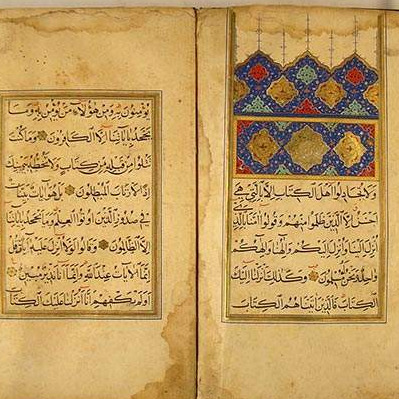 وَلَا تُجَادِلُوا أَهْلَ الْكِتَابِ إِلَّا بِالَّتِي هِيَ
أَحْسَنُ إِلَّا الَّذِينَ ظَلَمُوا مِنْهُمْ وَقُولُوا آمَنَّا بِالَّذِي
أُنْزِلَ إِلَيْنَا وَأُنْزِلَ إِلَيْكُمْ وَإِلَهُنَا وَإِلَهُكُمْ
وَاحِدٌ وَنَحْنُ لَهُ مُسْلِمُونَ وَكَذَلِكَ أَنْزَلْنَا إِلَيْكَ
الْكِتَابَ فَالَّذِينَ آتَيْنَاهُمُ الْكِتَابَ
يُؤْمِنُونَ بِهِ وَمِنْ هَؤُلَاءِ مَنْ يُؤْمِنُ بِهِ وَمَا
يَجْحَدُ بِآيَاتِنَا إِلَّا الْكَافِرُونَ وَمَا كُنْتَ
تَتْلُوا مِنْ قَبْلِهِ مِنْ كِتَابٍ وَلَا تَخُطُّهُ بِيَمِينِكَ
إِذًا لَارْتَابَ الْمُبْطِلُونَ بَلْ هُوَ آيَاتٌ بَيِّنَاتٌ
فِي صُدُورِ الَّذِينَ أُوتُوا الْعِلْمَ وَمَا يَجْحَدُ بِآيَاتِنَا
إِلَّا الظَّالِمُونَ وَقَالُوا لَوْلَا أُنْزِلَ عَلَيْهِ
إِنَّمَا الْآيَاتُ عِنْدَ اللَّهِ وَإِنَّمَا أَنَا نَذِيرٌ مُبِينٌ
أَوَلَمْ يَكْفِهِمْ أَنَّا أَنْزَلْنَا عَلَيْكَ الْكِتَابَ